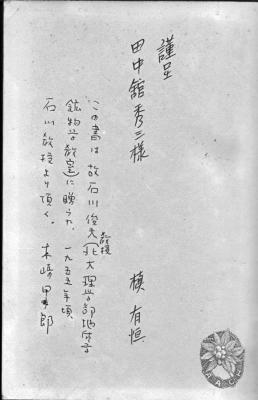 謹呈
田中舘秀三様
槙 有恒
この書は故石川俊夫教授(北大理学部地質学
鉱物学教室)に贈らる、一九五五年頃
石川教授より頂く。 木崎甲子郎
JACN